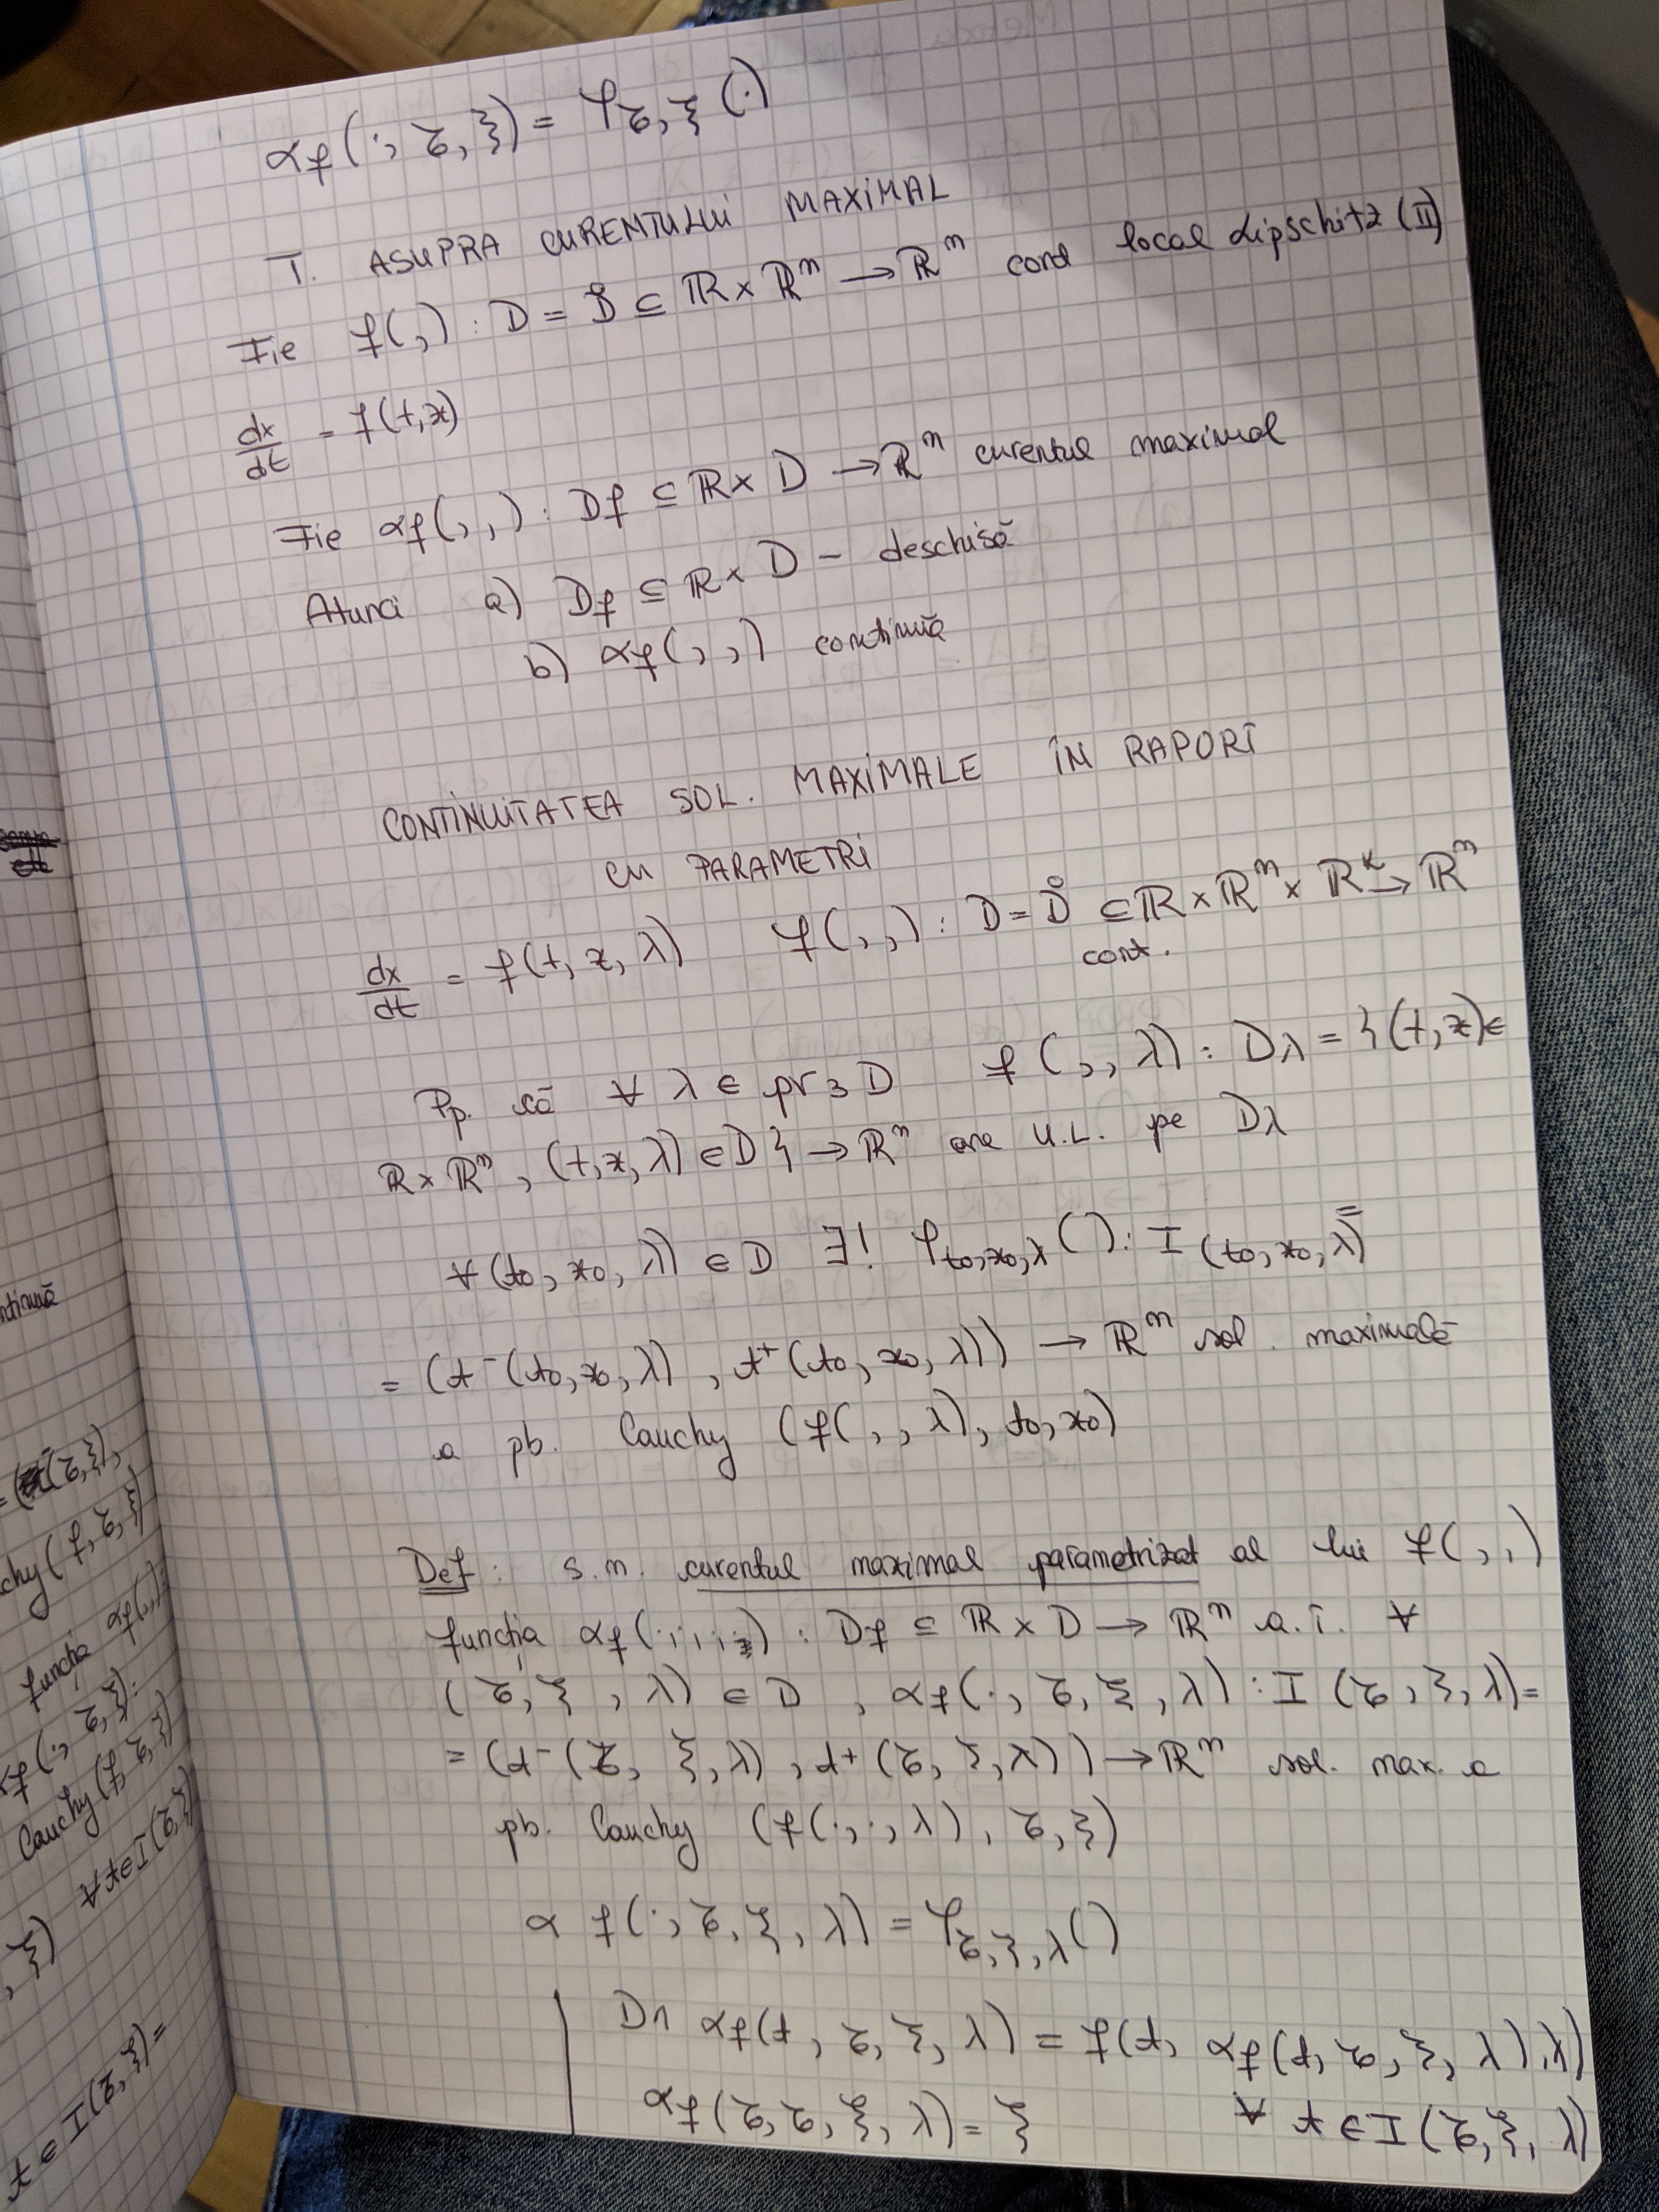 αf(·; τ, ξ) = φτ,ξ (·)
T. ASUPRA CURENTULUI MAXIMAL
Fie f(,) : D = D̊ ⊆ ℝ × ℝⁿ → ℝⁿ cont local Lipschitz (II)
dx/dt = f(t,x)
Fie αf(,,) : Df ⊆ ℝ × D → ℝⁿ curentul maximal
Atunci a) Df ⊆ ℝ × D - deschisă
b) αf(,,) continuă
CONTINUITATEA SOL. MAXIMALE ÎN RAPORT
CU PARAMETRI
dx/dt = f(t, x, λ) f(,,) : D = D̊ ⊆ ℝ × ℝⁿ × ℝᵏ → ℝⁿ
cont.
Pp. că ∀ λ ∈ pr₃ D f(,, λ) : Dλ = {(t,x) ∈
ℝ × ℝⁿ, (t,x,λ) ∈ D} → ℝⁿ are U.L. pe Dλ
∀ (t₀, x₀, λ) ∈ D ∃! φt₀,x₀,λ () : I (t₀, x₀, λ) =
= (t⁻(t₀, x₀, λ), t⁺(t₀, x₀, λ)) → ℝⁿ sol. maximală
a pb. Cauchy (f(,, λ), t₀, x₀)
Def: s.n. curentul maximal parametrizat al lui f(,,)
funcția αf(·,,,) : Df ⊆ ℝ × D → ℝⁿ a.î. ∀
(τ, ξ, λ) ∈ D, αf(·, τ, ξ, λ) : I (τ, ξ, λ) =
= (t⁻(τ, ξ, λ), t⁺(τ, ξ, λ)) → ℝⁿ sol. max. a
pb. Cauchy (f(·,·,λ), τ, ξ)
αf(·, τ, ξ, λ) = φτ,ξ,λ()
D₁ αf(t, τ, ξ, λ) = f(t, αf(t, τ, ξ, λ), λ)
αf(τ, τ, ξ, λ) = ξ ∀ t ∈ I (τ, ξ, λ)
ntinuă
chy (f, τ, ξ)
funcția αf(,,) :
αf(·, τ, ξ) :
Cauchy (f, τ, ξ)
∀t∈I(τ,ξ)
, ξ)
t ∈ I (τ, ξ) =